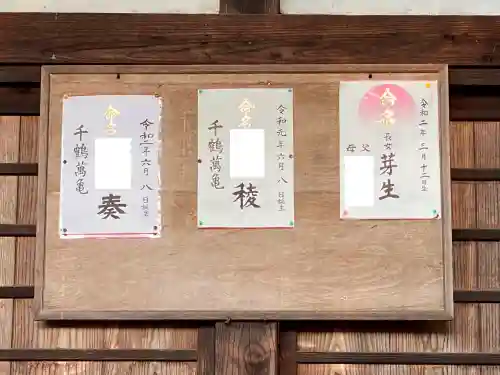 命名
長女
芽生
父
母
令和二年三月十二日生
命名
稜
千鶴萬亀
令和元年六月八日誕生
命名
奏
千鶴萬亀
令和二年六月八日誕生